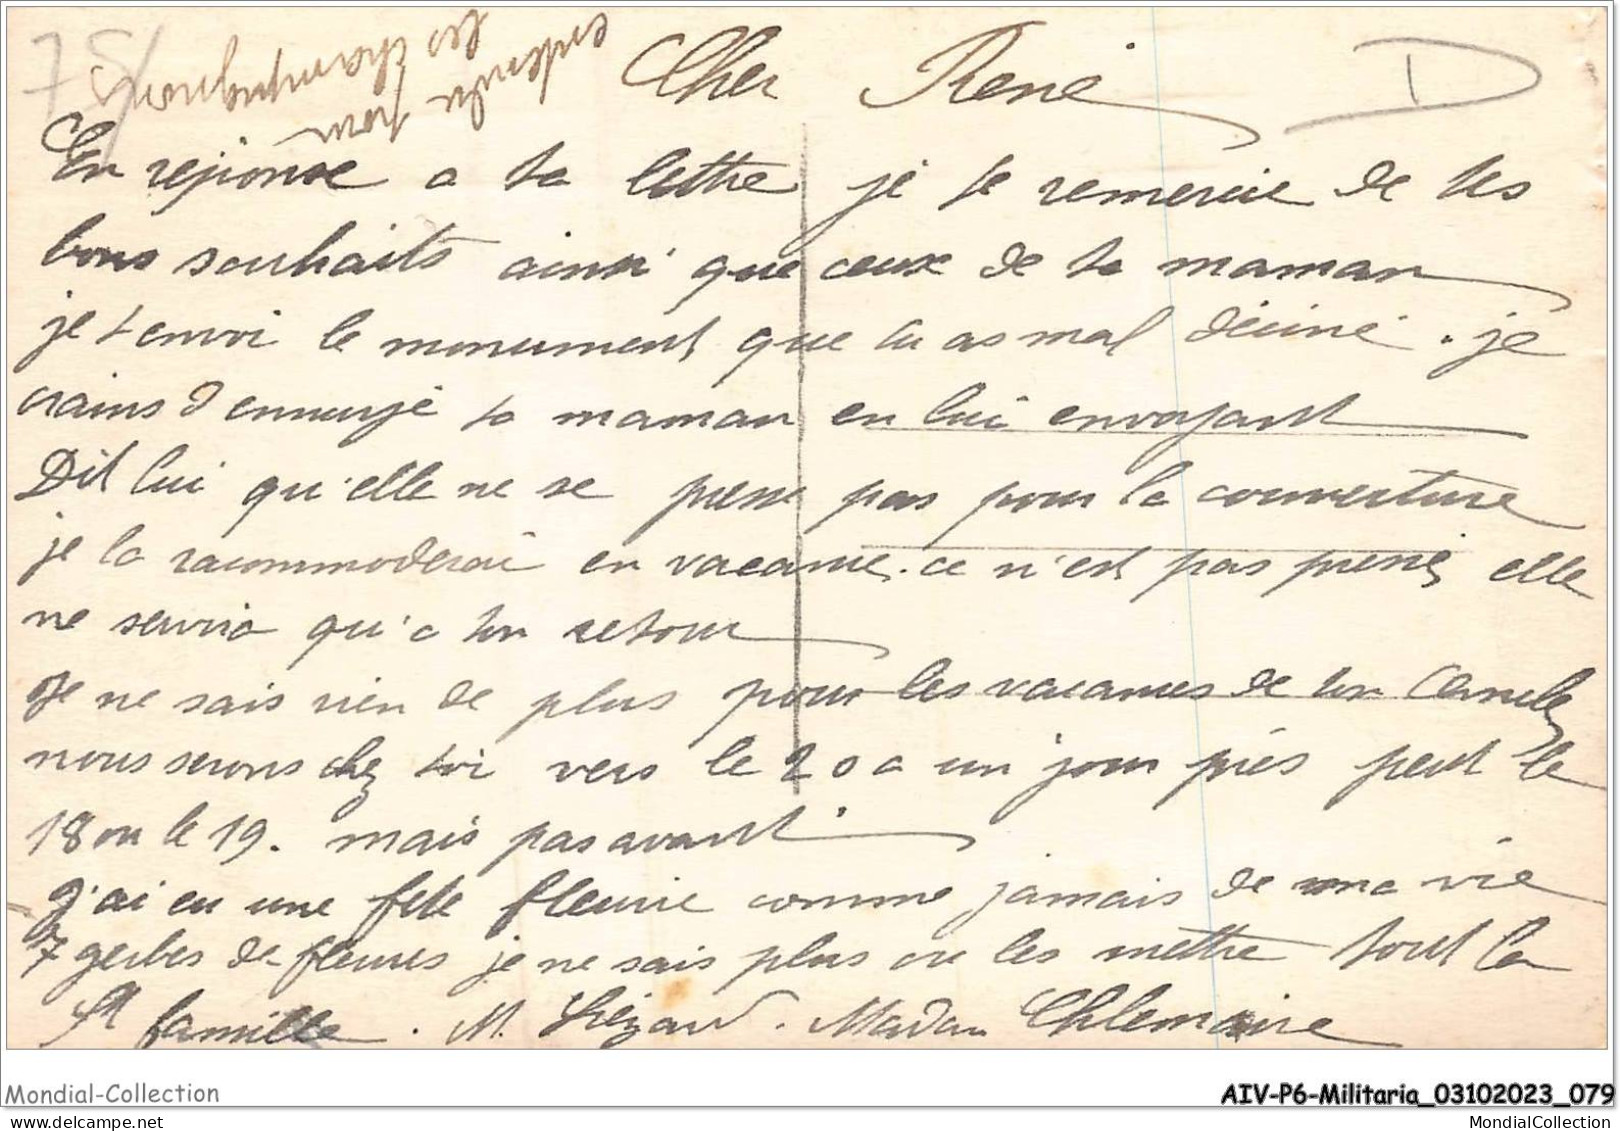 75/
entendu pour
les champignons
Cher René
D
En reponse a ta lettre je te remercie de tes
bons souhaits ainsi que ceux de ta maman
je t envoi le monument que tu as mal déciné. je
crains d ennuyé ta maman en lui envoyant
Dit lui qu'elle ne se presse pas pour la couverture
je la racommoderai en vacance. ce n'est pas pressé, elle
ne servira qu'a ton retour
Je ne sais rien de plus pour les vacances de ton Oncle,
nous serons chez toi vers le 20 a un jour près peut le
18 ou le 19. mais pas avant.
J'ai eu une fête fleurie comme jamais de ma vie
7 gerbes de fleurs je ne sais plus ou les mettre tout la
St famille. M. Liézard. Madam
Mondial-Collection
AIV-P6-Militaria_03102023_079
mondial-collection.com
MondialCollection